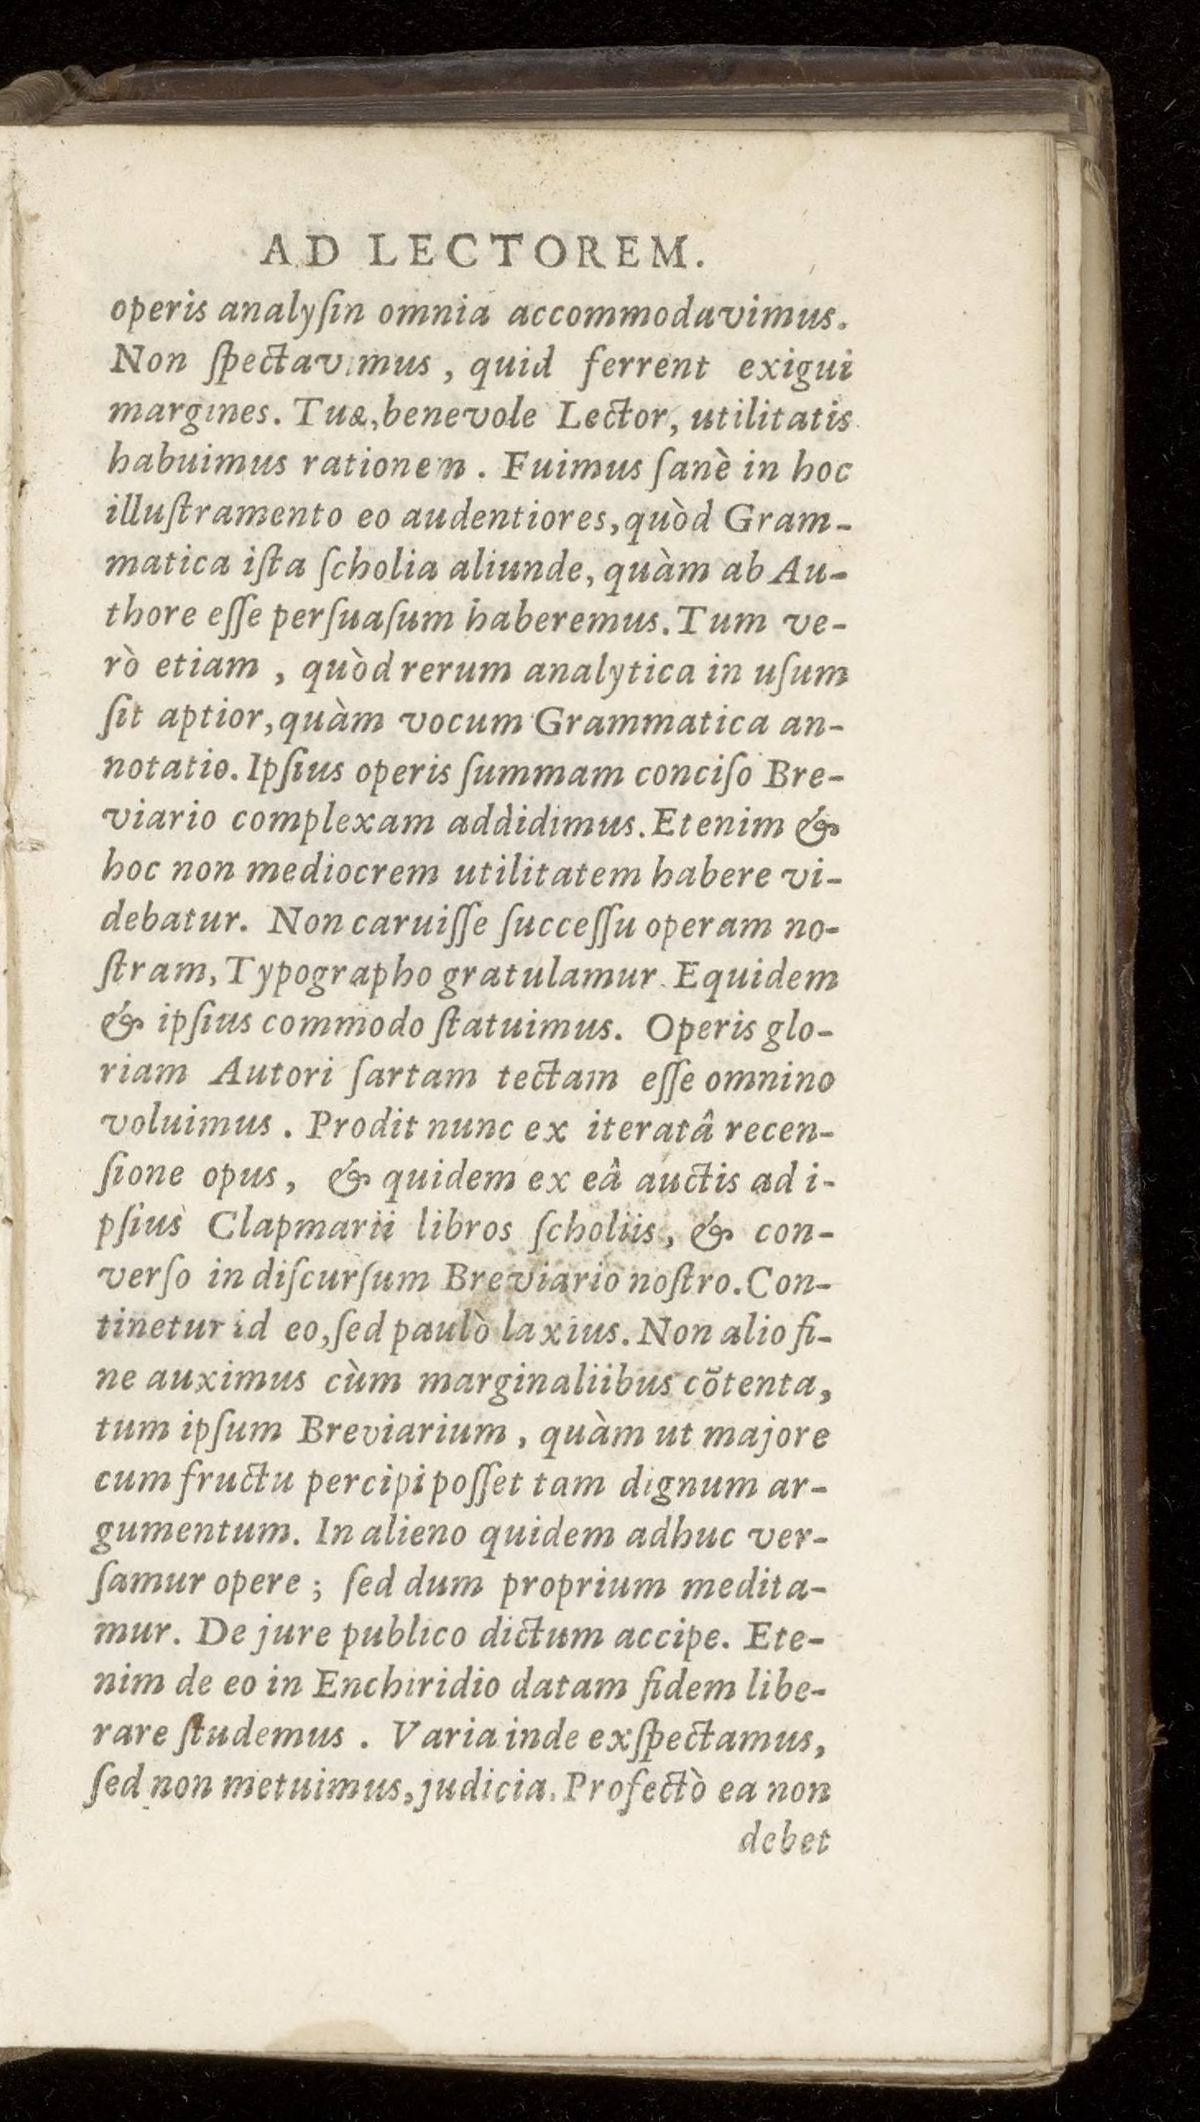 AD LECTOREM.
operis analyſin omnia accommodavimus.
Non ſpectavimus, quid ferrent exigui
margines. Tuæ, benevole Lector, utilitatis
habuimus rationem. Fuimus ſanè in hoc
illuſtramento eo audentiores, quòd Gram-
matica iſta ſcholia aliunde, quàm ab Au-
thore eſſe perſuaſum haberemus. Tum ve-
rò etiam, quòd rerum analytica in uſum
ſit aptior, quàm vocum Grammatica an-
notatio. Ipſius operis ſummam conciſo Bre-
viario complexam addidimus. Etenim &
hoc non mediocrem utilitatem habere vi-
debatur. Non caruiſſe ſucceſſu operam no-
ſtram, Typographo gratulamur. Equidem
& ipſius commodo ſtatuimus. Operis glo-
riam Autori ſartam tectam eſſe omnino
voluimus. Prodit nunc ex iteratâ recen-
ſione opus, & quidem ex eâ auctis ad i-
pſius Clapmarii libros ſcholiis, & con-
verſo in diſcurſum Breviario noſtro. Con-
tinetur id eo, ſed paulò laxius. Non alio fi-
ne auximus cùm marginaliibus cõtenta,
tum ipſum Breviarium, quàm ut majore
cum fructu percipi poſſet tam dignum ar-
gumentum. In alieno quidem adhuc ver-
ſamur opere; ſed dum proprium medita-
mur. De jure publico dictum accipe. Ete-
nim de eo in Enchiridio datam fidem libe-
rare ſtudemus. Varia inde exſpectamus,
ſed non metuimus, judicia. Profectò ea non
debet